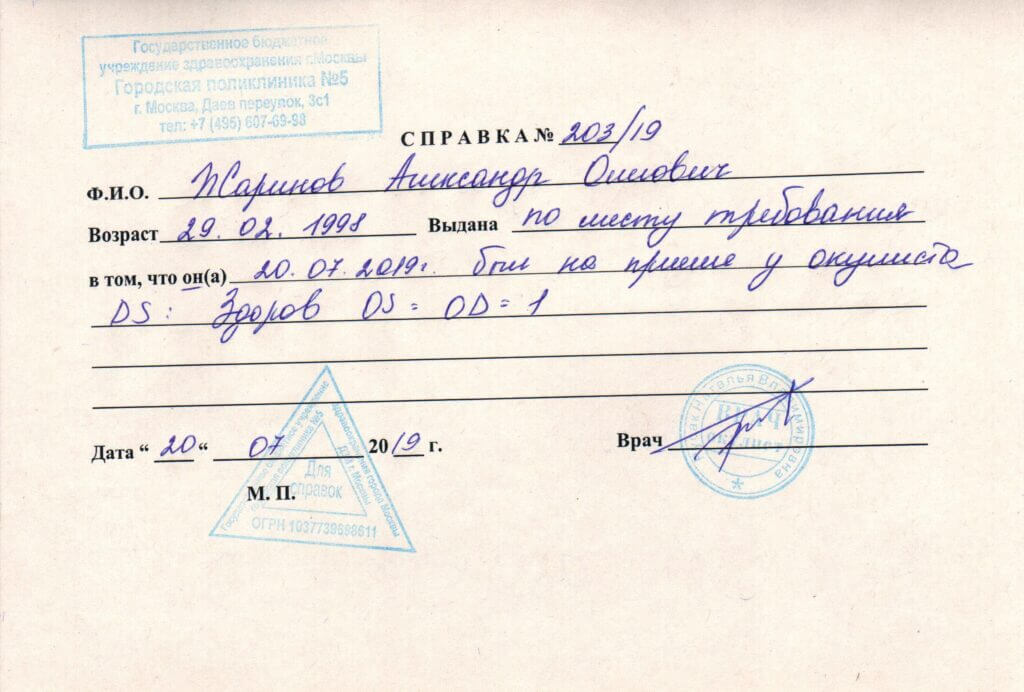 Государственное бюджетное
учреждение здравоохранения г.Москвы
Городская поликлиника №5
г. Москва, Даев переулок, 3с1
тел: +7 (495) 607-69-98
СПРАВКА № 203/19
Ф.И.О. Жаринов Александр Олегович
Возраст 29.02.1998 Выдана по месту требования
в том, что он(а) 20.07.2019г. был на приеме у окулиста
DS: Здоров OS = OD = 1
Дата “ 20 “ 07 2019 г.
Врач
М. П.
Для
справок
ОГРН 1037739688611
Наталья Владимировна
ВРАЧ
окулист